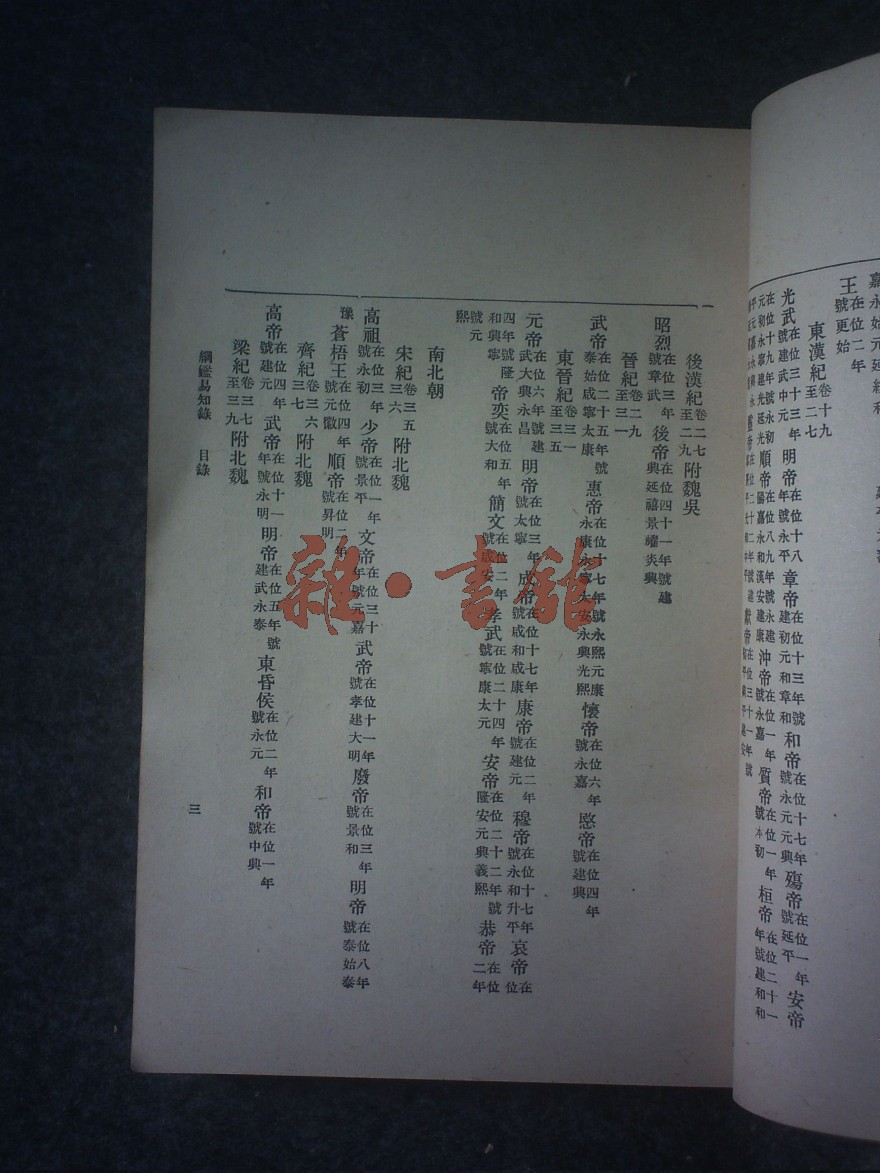 嘉永始元延綏和
王在位二年號更始
東漢紀卷十九至二七
光武在位三十三年號建武中元 明帝在位十八年號永平 章帝在位十三年號建初元和章和 和帝在位十七年號永元元興 殤帝在位一年號延平 安帝
在位十九年號永初元初永寧建光延光 順帝在位十九年號永建陽嘉永和漢安建康 沖帝在位一年號永嘉 質帝在位一年號本初 桓帝在位二十一年號建和和
後漢紀卷二七至二九附魏吳
昭烈在位三年號章武 後帝在位四十一年號建興延禧景耀炎興
晉紀卷二九至三一
武帝在位二十五年號泰始咸寧太康 惠帝在位十七年號永熙元康永康永寧太安永興光熙 懷帝在位六年號永嘉 愍帝在位四年號建興
東晉紀卷三一至三五
元帝在位六年號建武大興永昌 明帝在位三年號太寧 成帝在位十七年號咸和咸康 康帝在位二年號建元 穆帝在位十七年號永和升平 哀帝在位
四年號隆和興寧 帝奕在位五年號大和 簡文在位二年號咸安 孝武在位二十四年號寧康太元 安帝在位二十二年號隆安元興義熙 恭帝在位二年
號元熙
南北朝
宋紀卷三五三六附北魏
高祖在位三年號永初 少帝在位一年號景平 文帝在位三十年號元嘉 武帝在位十一年號孝建大明 廢帝在位三年號景和 明帝在位八年號泰始泰
豫 蒼梧王在位四年號元徽 順帝在位二年號昇明
齊紀卷三六三七附北魏
高帝在位四年號建元 武帝在位十一年號永明 明帝在位五年號建武永泰 東昏侯在位二年號永元 和帝在位一年號中興
梁紀卷三七至三九附北魏
綱鑑易知錄 目錄
三
雜·書館